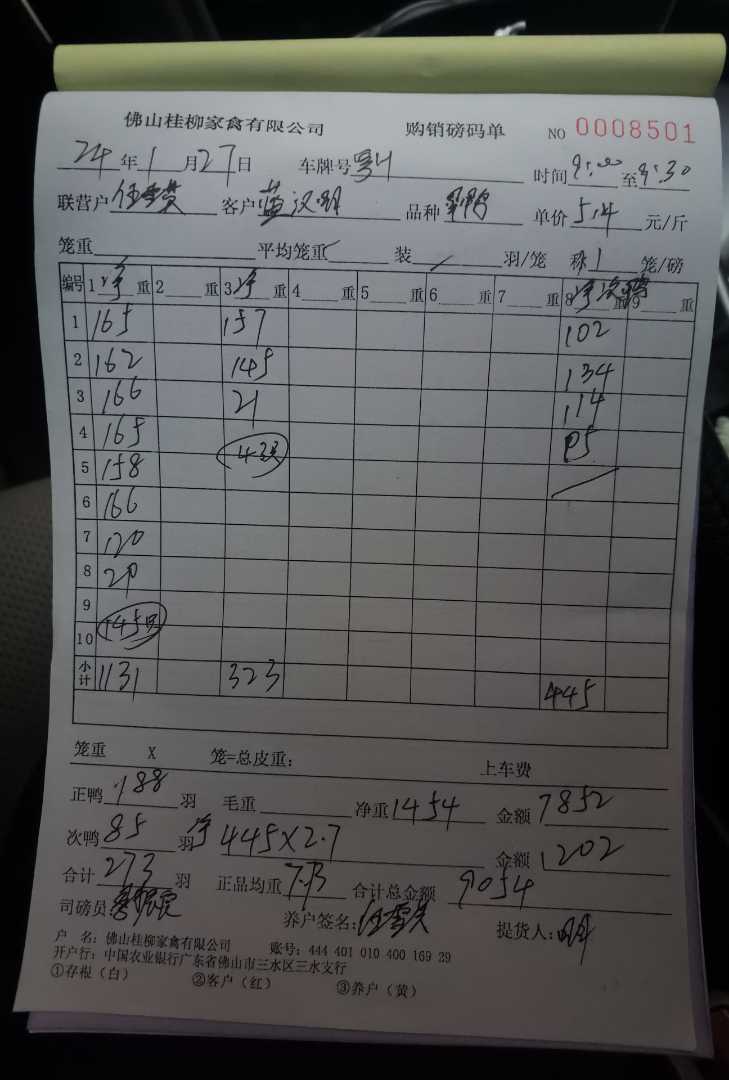 佛山桂柳家禽有限公司 购销磅码单 NO 0008501
24年1月27日 车牌号 时间9:00至9:30
联营户 客户蓝汉明 品种 单价5.4元/斤
笼重 平均笼重 装 羽/笼 称1笼/磅
编号 1净重 2重 3净重 4重 5重 6重 7重 8净次鸭重 9重
1 165 157 102
2 162 145 134
3 166 21 114
4 165 43只 95
5 158
6 166
7 120
8 29
9
10 145只
小计 1131 323 445
笼重 X 笼=总皮重: 上车费
正鸭188羽 毛重 净重1454 金额7852
次鸭85羽 净445×2.7 金额1202
合计273羽 正品均重7.73 合计总金额9054
司磅员 养户签名: 提货人:
户 名:佛山桂柳家禽有限公司 账号:444 401 010 400 169 29
开户行:中国农业银行广东省佛山市三水区三水支行
①存根(白) ②客户(红) ③养户(黄)